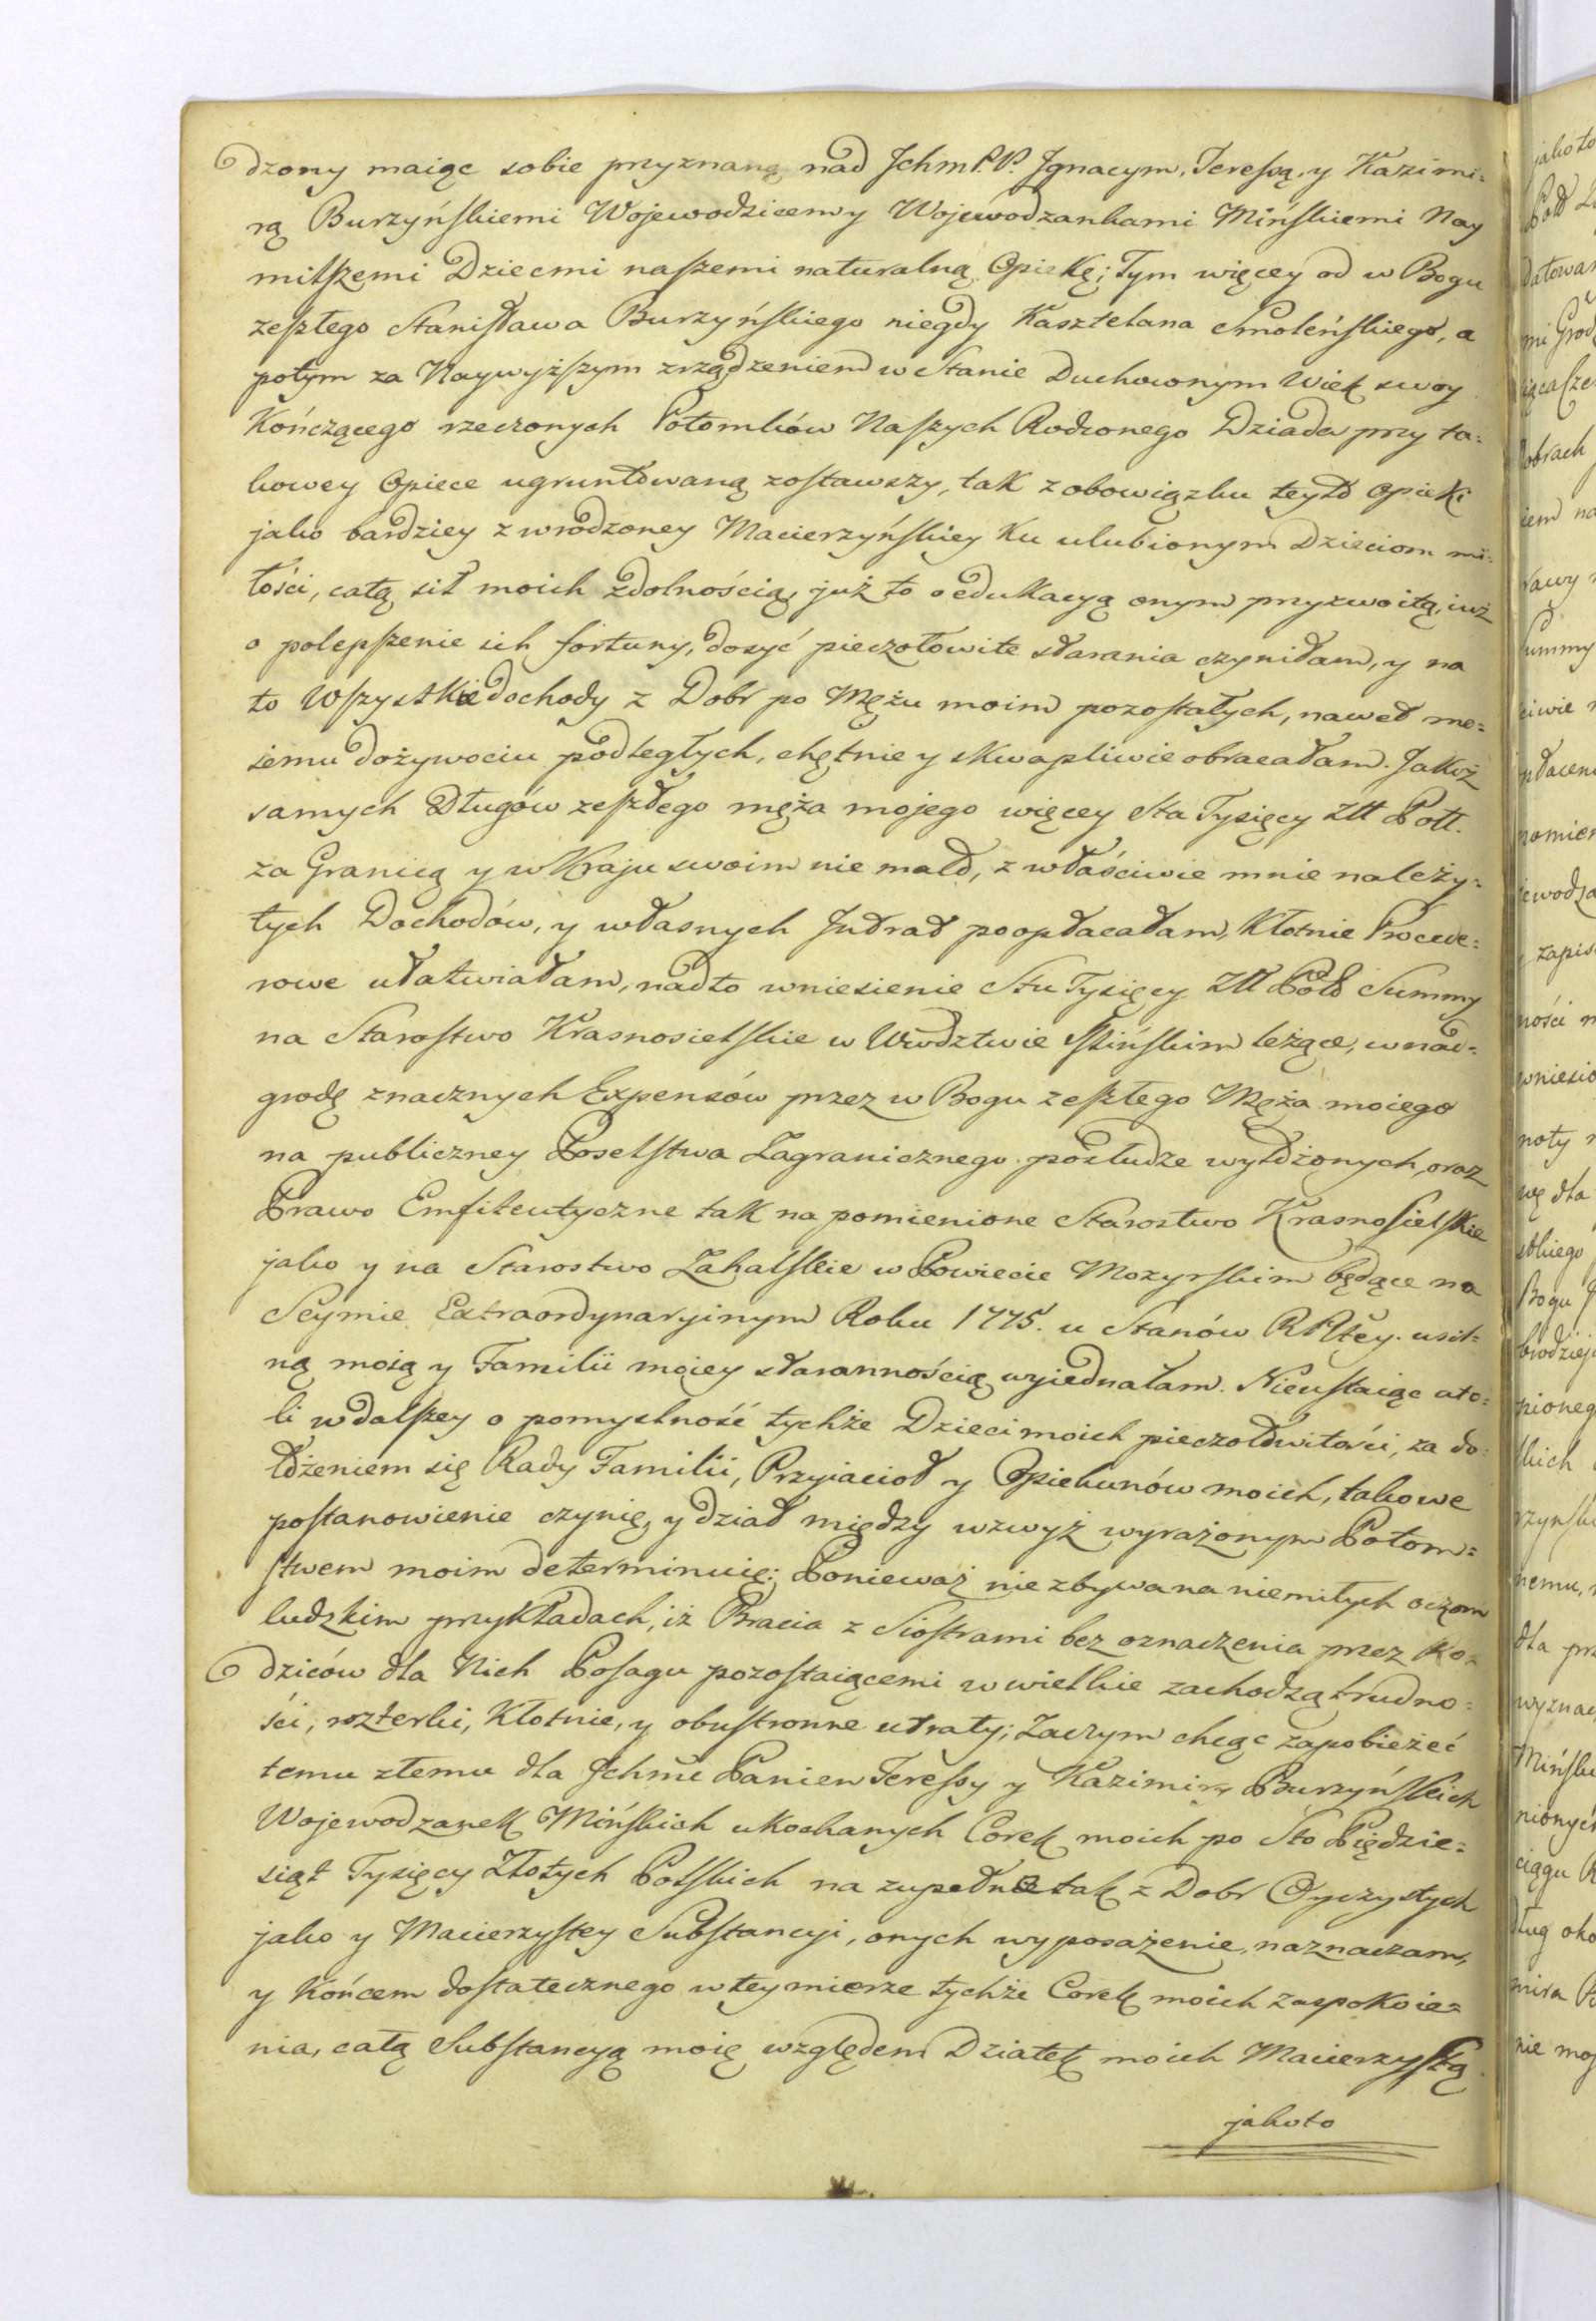 dzony maiąc sobie przyznaną nad Jchm P.P. Jgnacym, Teressą, y Kazimi-
rą Burzyńskiemi Wojewodzicem y Wojewodzankami Mińskiemi Nay
milszemi Dziecmi naszemi naturalną Opiekę; Tym więcey od w Bogu
zeszłego Stanisława Burzyńskiego niegdy Kasztelana Smoleńskiego, a
potym za Naywyższym zrządzeniem w Stanie Duchownym Wiek swoy
Kończącego rzeczonych Potomków Naszych Rodzonego Dziada przy ta-
kowey Opiece ugruntowaną zostawszy, tak z obowiązku teyto Opieki
jako bardziey z wrodzoney Macierzyńskiey Ku ulubionym Dzieciom mi-
łości, całą sił moich zdolnością, już to o edukacyą onym przyzwoitą, iuż
o polepszenie ich fortuny, dosyć pieczołowite starania czyniłam, y na
to Wszystkie dochody z Dobr po Mężu moim pozostałych, nawet mo-
iemu dożywociu podległych, chętnie y skwapliwie obracałam. Jakoż
samych Długów zeszłego męża mojego więcey Sta Tysięcy Złł Poll.
za Granicą y w Kraju swoim nie mało, z właściwie mnie należy-
tych Dochodów, y własnych Jntrat poopłacałam, Kłotnie Procede-
rowe ułatwiałam, nadto wniesienie Stu Tysięcy Złł Pol Summy
na Starostwo Krasnosielskie w Wwdztwie Mińskim leżące, w nad-
grodę znacznych Expensów przez w Bogu zeszłego Męża moiego
na publiczney Poselstwa Zagranicznego posłudze wyłożonych, oraz
Prawo Emfiteutyczne tak na pomienione Starostwo Krasnosielskie
jako y na Starostwo Zahalskie w Powiecie Mozyrskim będące na
Seymie Extraordynaryinym Roku 1775. u Stanów RPltey. usil-
ną moią y Familii moiey starannością wyiednałam. Nieustaiąc ato-
li w dalszey o pomyslność tychże Dzieci moich pieczołowitości, za do-
łożeniem się Rady Familii, Przyiacioł y Opiekunów moich, takowe
postanowienie czynię, y dział między wzwyż wyrażonym Potom-
stwem moim determinuię: Ponieważ nie zbywa na niemiłych oczom
ludzkim przykładach, iż Bracia z Siostrami bez oznaczenia przez Ro-
dziców dla Nich Posagu pozostaiącemi w wielkie zachodzą trudno-
ści, rozterki, Kłotnie, y obustronne utraty; Zaczym chcąc zapobieżeć
temu złemu dla Jchmć Panien Teressy y Kazimiry Burzyńskich
Wojewodzanek Mińskich ukochanych Corek moich po Sto Piędzie-
siąt Tysięcy Złotych Polskich na zupełne tak z Dobr Oyczystych
jako y Macierzystey Substancyi, onych wyposażenie, naznaczam,
y Końcem dostatecznego w tey mierze tychże Corek moich zaspokoie-
nia, całą Substancyą moię względem Dziatek moich Macierzystą
jakoto